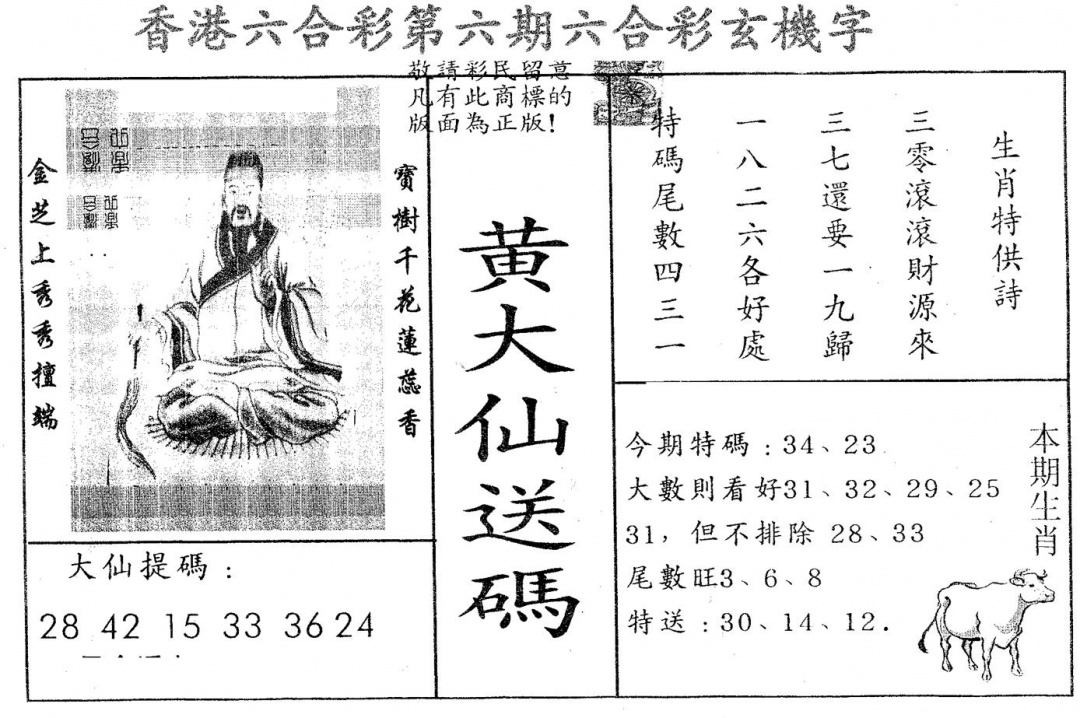 香港六合彩第六期六合彩玄機字
敬請彩民留意
凡有此商標的
版面為正版!
生肖特供詩
三零滾滾財源來
三七還要一九歸
一八二六各好處
特碼尾數四三一
黃大仙送碼
寶樹千花蓮蕊香
金芝上秀秀擅端
大仙提碼:
28 42 15 33 36 24
本期生肖
今期特碼:34、23
大數則看好31、32、29、25
31,但不排除 28、33
尾數旺3、6、8
特送:30、14、12.